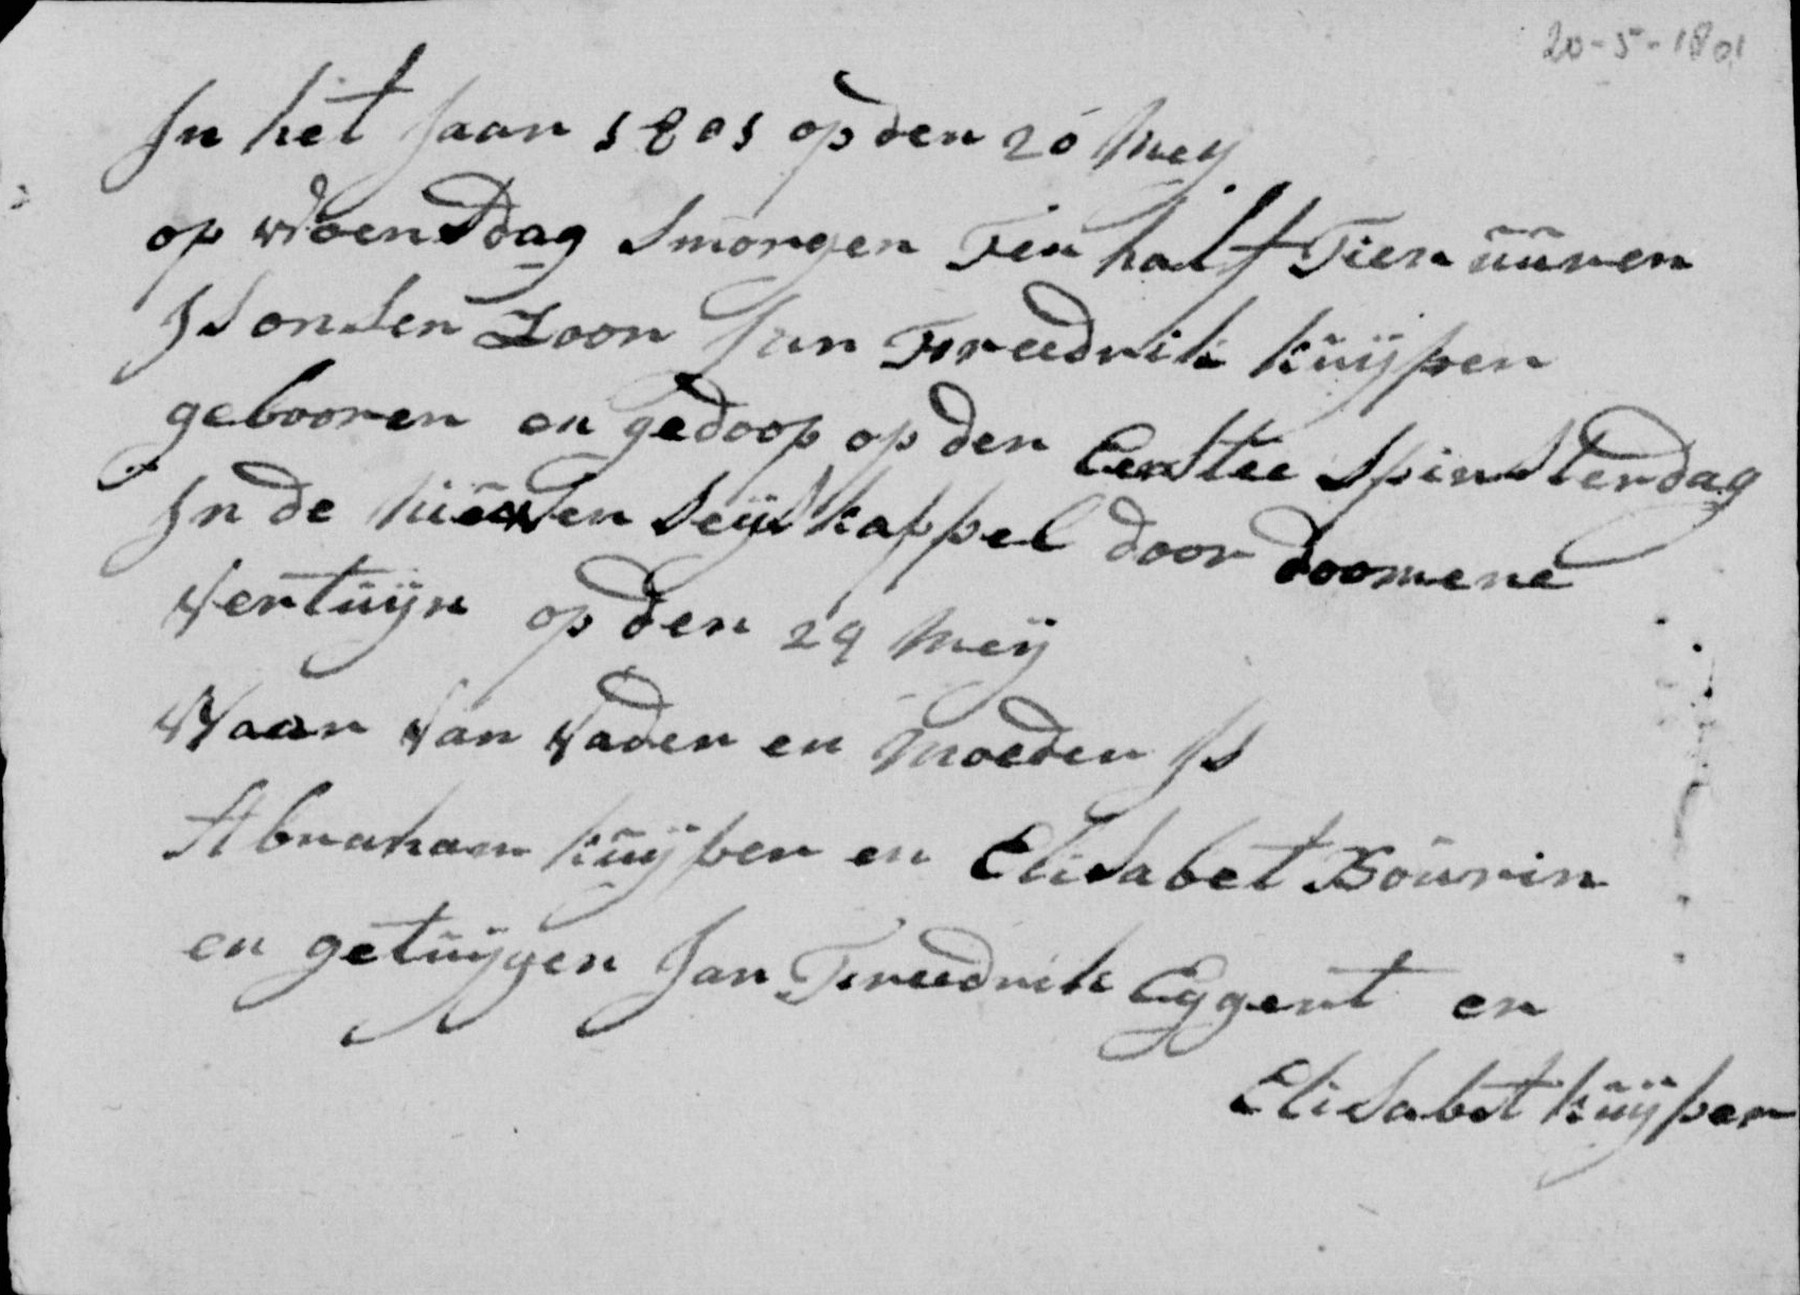 20-5-1801
In het Jaar 1801 op den 20 Meÿ
op Woensdag Smorgen Ten half Tien üüren
Is onsen Zoon Jan Freedrik küÿper
gebooren en gedoop op den Eerstee Spinsterdag
In de Seÿds kappel door doomene
Vertüÿn op den 24 Meÿ
Waar Van Vader en Moeder Is
Abraham küÿper en Elisabet Boúrin
en getüÿgen Jan Freedrik Eggert en
Elisabet küÿper